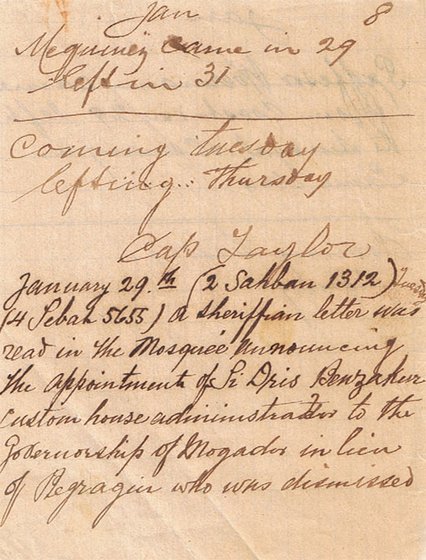 Jan 8
Mcquiney came in 29
Left in 31
Coming tuesday
lefting: Thursday
Cap Taylor
January 29.th (2 Sahban 1312)
(4 Sebah 5655) a sheriffian letter was
read in the Mosquée announcing
the appointment of Si Dris Benzakur
custom house administrator to the
Governorship of Mogador in lieu
of Regragui who was dismissed